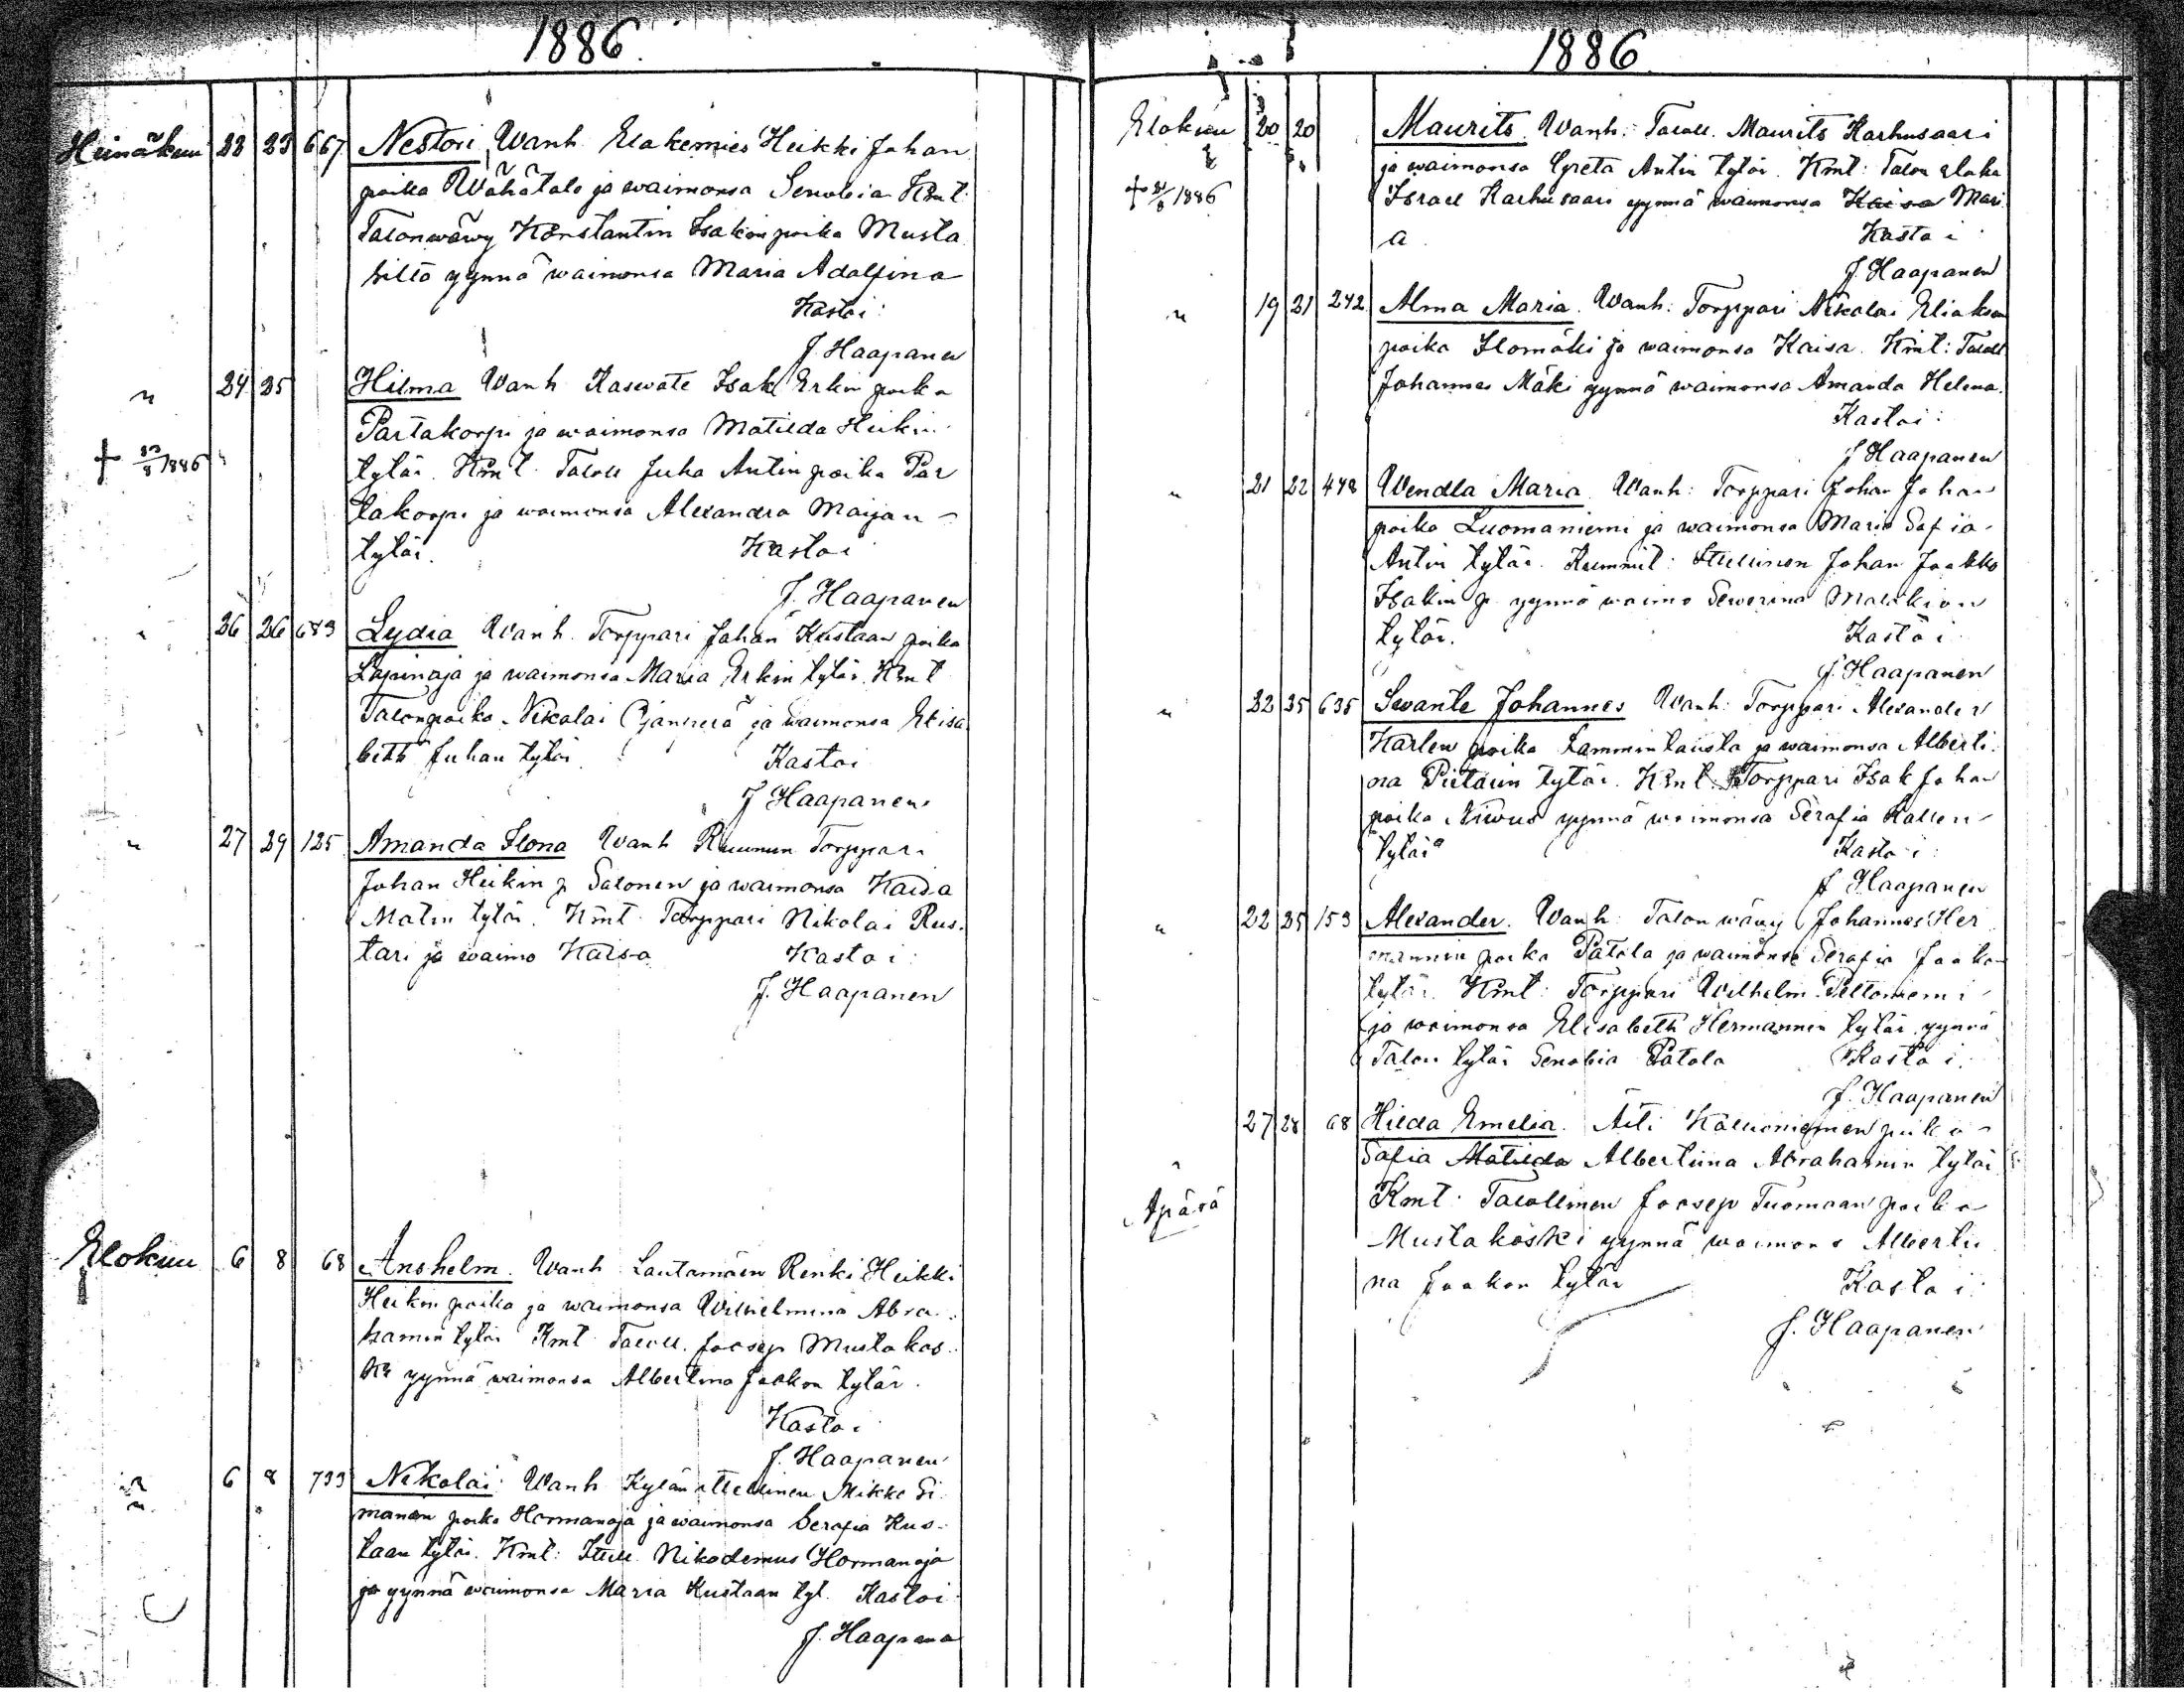 1886
Heinäkuu 23 23 667 Nestori, Wanh Elakemies Heikki Johan
poika Wähätalo ja waimonsa Senobia Kmt:
Talonwäwy Konstantin Isakin poika Musta
hilto yynnä waimonsa Maria Adolfina
Kastoi:
J. Haapanen
" 24 25 Hilma Wanh Kaswate Isak Erkin poika
Partakorpi ja waimonsa Matilda Heikin
+ 1886 tytär. Kmt. Taloll Juha Antin poika Par
takorpi ja waimonsa Alexandra Maijan
tytär. Kastoi
J. Haapanen
" 26 26 689 Lydia Wanh. Torppari Johan Kustaan poika
Lapinoja ja waimonsa Maria Erkin tytär. Kmt
Talonpoika Nikolai ja waimonsa Elisa
beth Juhan tytär Kastoi
J Haapanen
" 27 29 125 Amanda Ilona Wanh Ruunun Torppari
Johan Heikin p Salonen ja waimonsa Kaisa
Matin tytär. Kmt. Torppari Nikolai Rus-
tari ja waimo Kaisa Kastoi:
J. Haapanen
Elokuu 6 8 68 Anshelm. Wanh Lautamäen Renki Heikki
Heikin poika ja waimonsa Wilhelmina Abra-
hamin tytär Kmt Taloll. Joosep Mustakos-
ki yynnä waimonsa Albertina Jaakon tytär.
Kastoi
J. Haapanen
" 6 8 733 Nikolai Wanh Kylän ittellinen Mikki Si
manan poika Hormanoja ja waimonsa Serafia Kus-
taan tytär. Kmt: Ittell Nikodemus Hormanoja
ja yynnä waimonsa Maria Kustaan tyt. Kastoi
J. Haapana
1886
Elokuu 20 20 Maurits. Wanh: Taloll. Maurits Karhusaari
ja waimonsa Greta Antin tytär. Kmt: Talon elaka
+ 1886 Israel Karhusaari yynnä waimonsa Kaisa Mari
a Kastoi
J. Haapanen
" 19 21 242 Alma Maria. Wanh: Torppari Nikolai Eliaksen
poika Ilomäki ja waimonsa Kaisa. Kmt: Taloll
Johannes Mäki yynnä waimonsa Amanda Helena.
Kastoi:
J Haapanen
" 21 22 448 Wendla Maria. Wanh: Torppari Johan Johan
poika Luomaniemi ja waimonsa Maria Sofia
Antin tytär. Kummit: Ittellinen Johan Jaakko
Isakin p. yynnä waimo Sewerina Malakian
tytär. Kastoi
J. Haapanen
" 22 25 635 Sevante Johannes Wanh: Torppari Alexander
Karlen poika Lammintausta ja waimonsa Alberti
na Pietarin tytär. Kmt: Torppari Isak Johan
poika Niwus yynnä waimonsa Serafia Kallen
tytär Kastoi:
J Haapanen
" 22 25 153 Alexander. Wanh: Talon wäwy Johannes Her
mannin poika Patala ja waimonsa Serafia Jaakon
tytär. Kmt: Torppari Wilhelm Peltoniemi
ja waimonsa Elisabeth Hermannin tytär yynnä
Talon tytär Senobia Patola Kastoi:
J. Haapanen
" 27 28 68 Hilda Emelia. Äiti Kallioniemen piika
Safia Matilda Albertiina Abrahamin tytär
Äpärä Kmt: Talollinen Joosep Tuomaan poika
Mustakoski yynnä waimons Albertii
na Jaakon tytär Kastoi
J. Haapanen